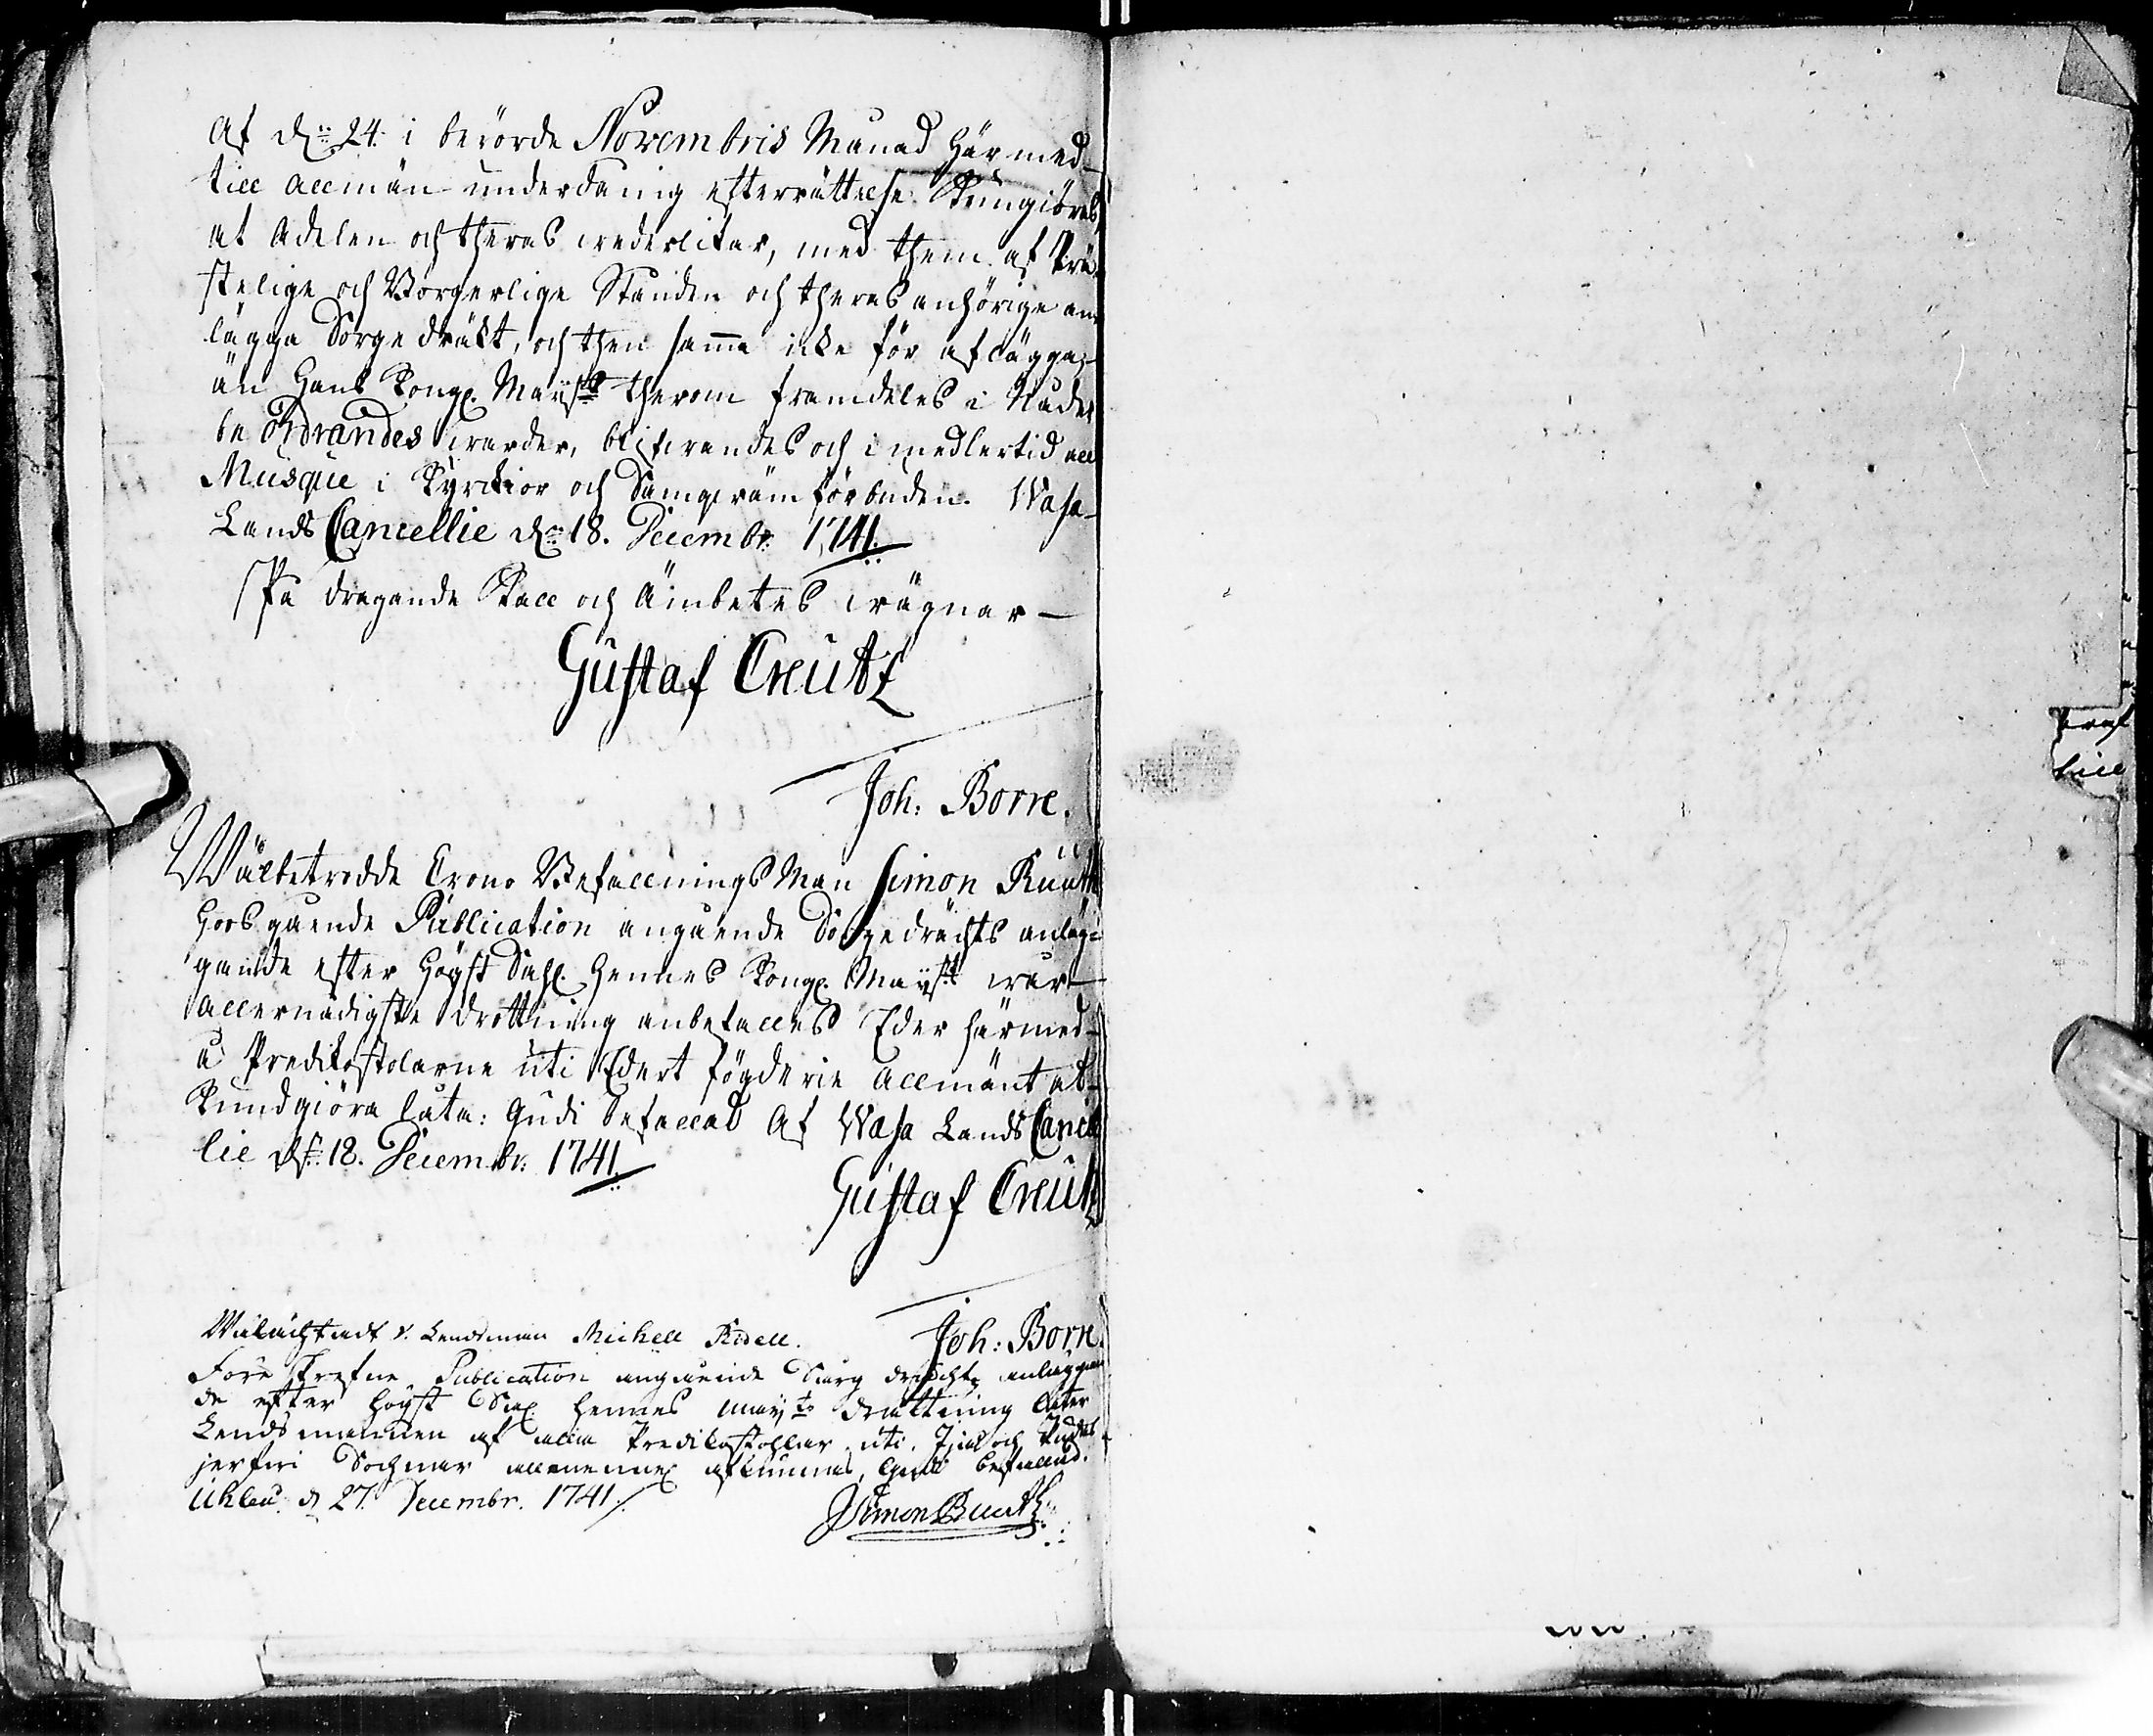 af d:n 24. i berörde Novembris Månad härmed
till allmän underdånig efterrättelse kungiöres,
at Adelen och theras wederlikar, med them af Prä-
stelige och Borgerlige Stånden och theras anhörige an-
lägga Sorgedräkt, och then samma icke för aflägga,
än Hans Kongl. Maij:ts therom framdeles i Nåder
be ordrandes warder, blifwandes och i medlertid all
Musique i Kyrckior och Samqwäm förbuden. Wasa
Lands Cancellie d:n 18. Decembr: 1741.
På dragande Kall och Ämbetes wägnar
Gustaf Creutz
Joh: Borre.
Wälbetrodde Crono BefallningsMan Simon Ruuth
hosgående Publication angående Sorgedrächts anläg-
gande efter Högst Sahl. Hennes Kongl. Maij:ts wår
allernådigste Drottning anbefalles Eder härmed
å Predikostolarne uti Edert fögderie allmänt at
kundgiöra låta: Gudi befallad Af Wasa Lands Cancel
lie d:n 18. Decembr: 1741.
Gustaf Creutz
Joh: Borre
Wälachtadt v. Lendsman Michell Ridell.
Föreskrefne Publication angående Sorg drächtz anläggan
de efter Högst Sal. hennes Maij:ts Drottning låter
Lendsmannen af alla Predikostohlar uti Ijo och Pudas
jerfwi Sochnar afkunnas, Gudi befallad.
Uhleå d 27. Decembr. 1741.
Simon Ruuth